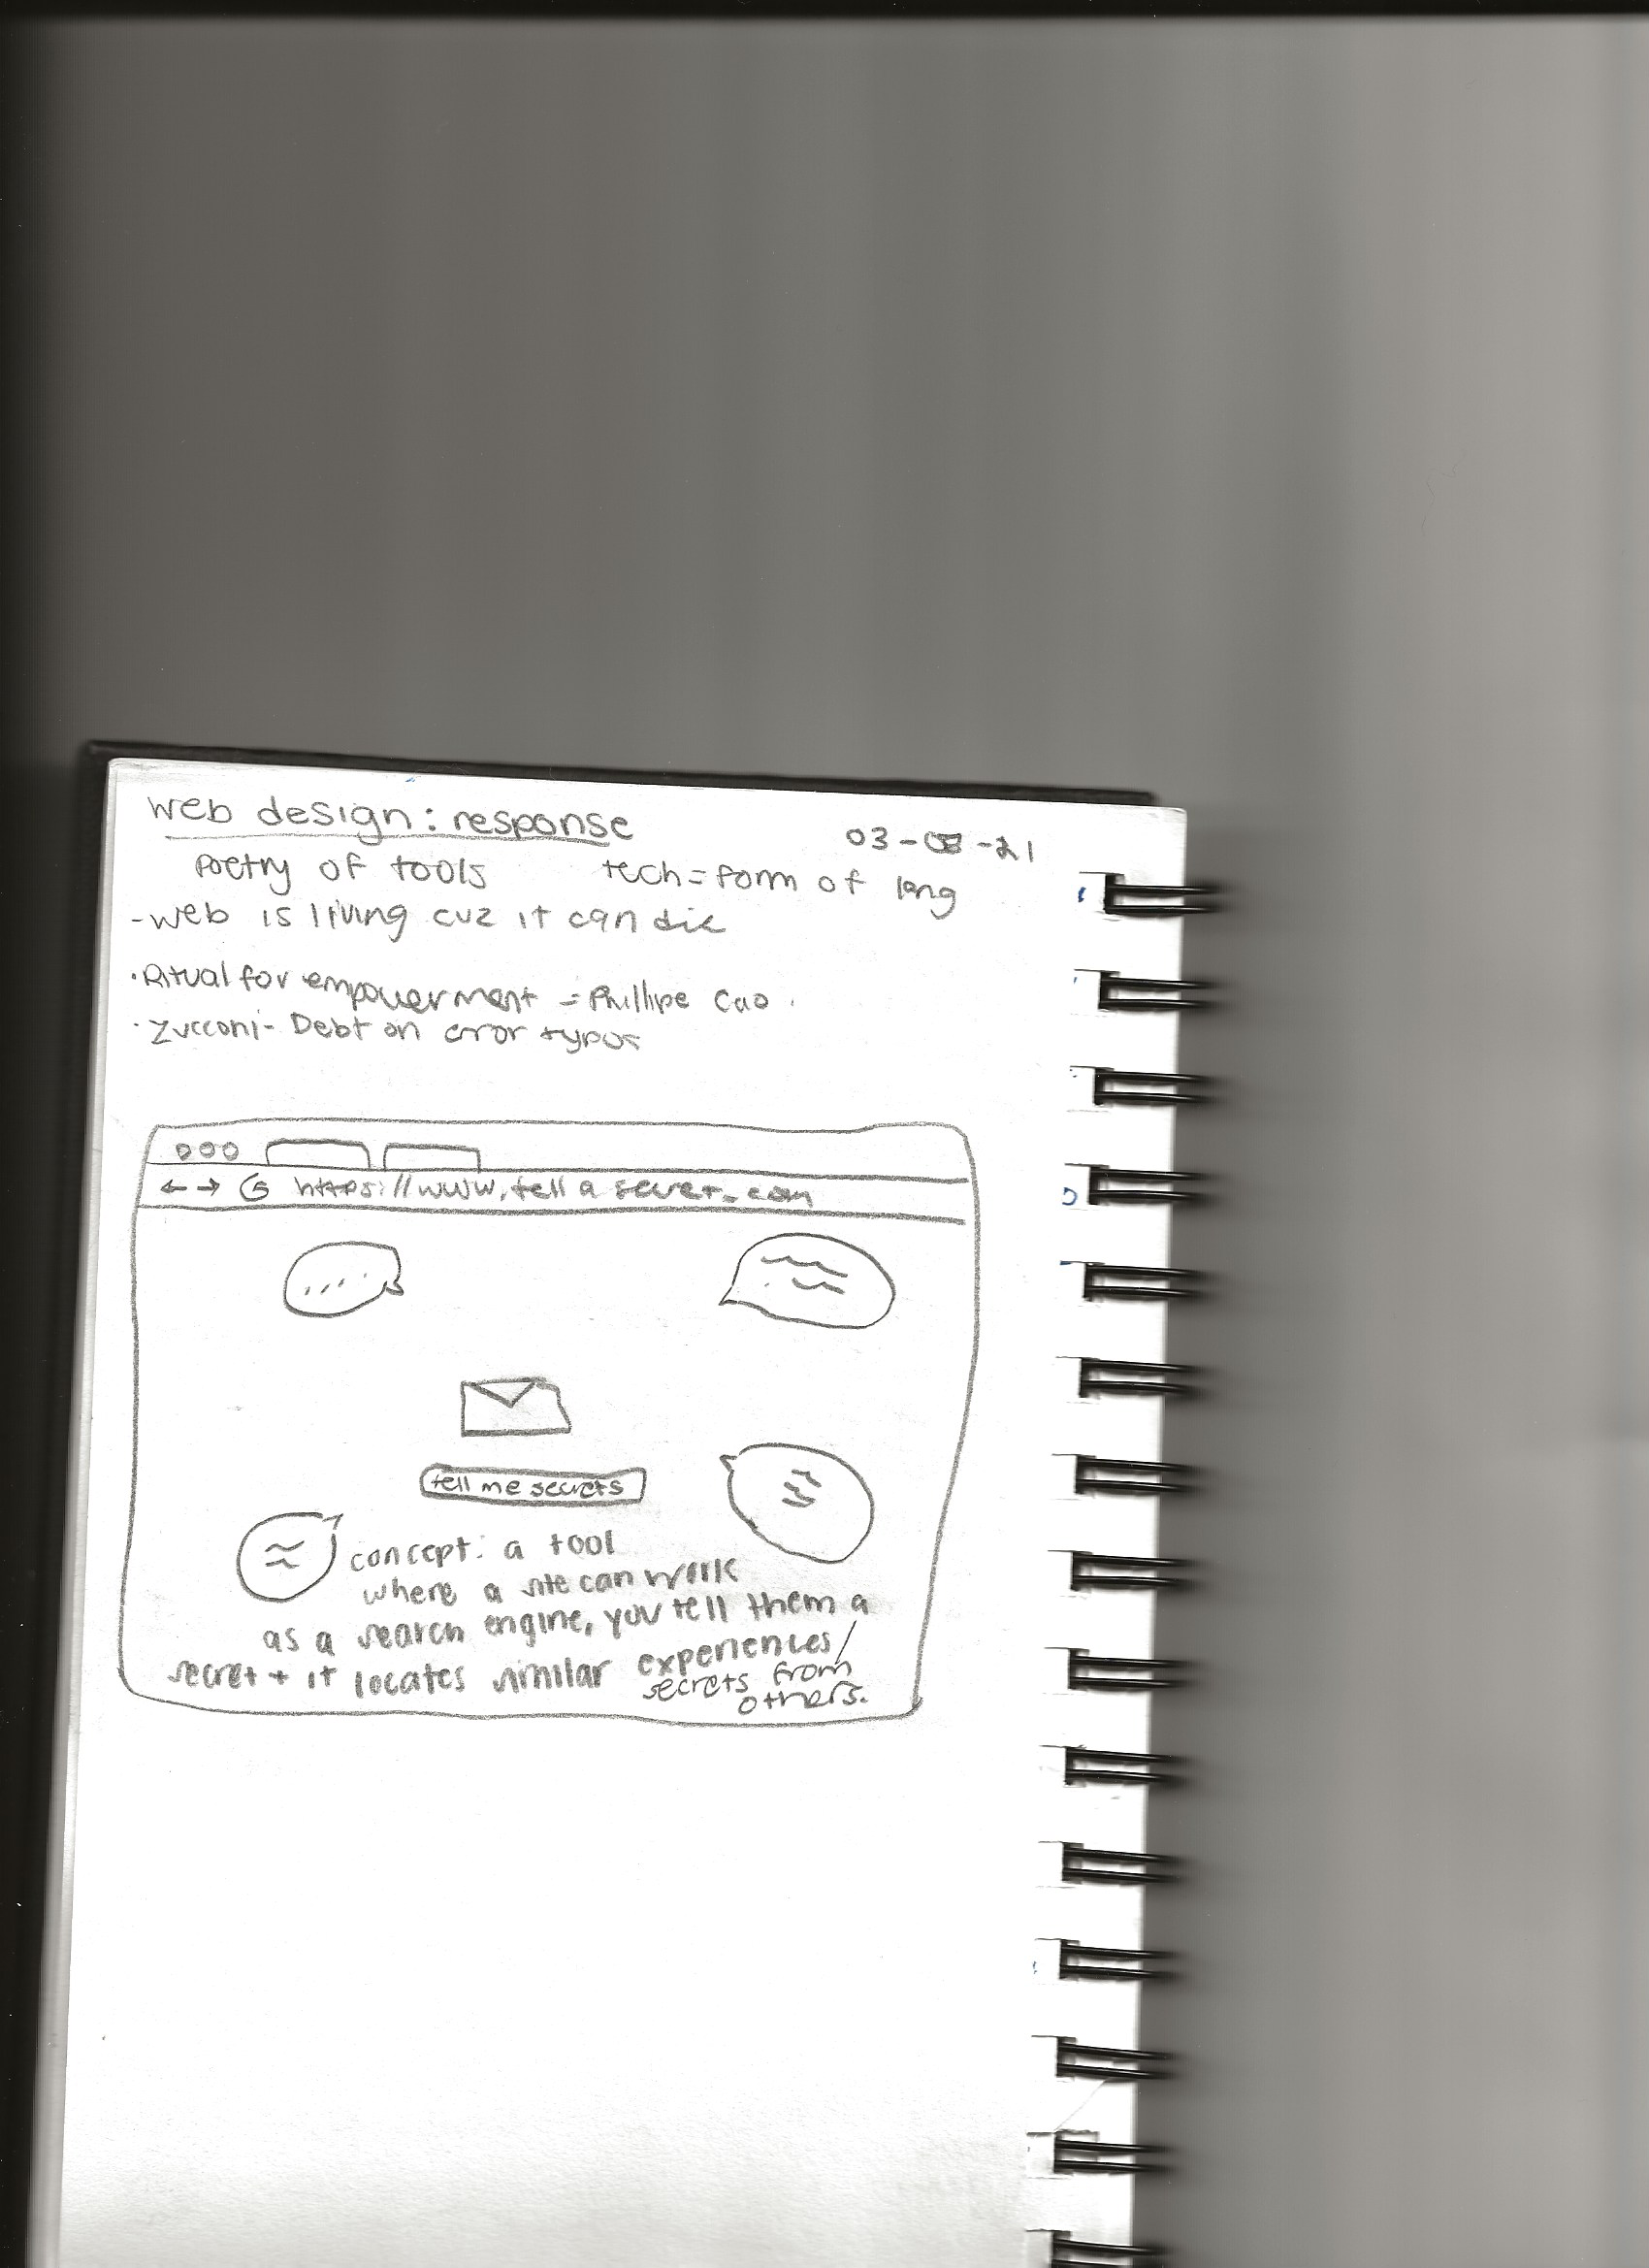 web design: response
03- -21
Poetry of tools tech = form of lang
- web is living cuz it can die
· Ritual for empowerment = Phillipe Cao.
· Zucconi - Debt on error typos
← → G https://www.tell a secret.com
tell me secrets
concept: a tool
where a site can work
as a search engine, you tell them a
secret + it locates similar experiences/
secrets from
others.